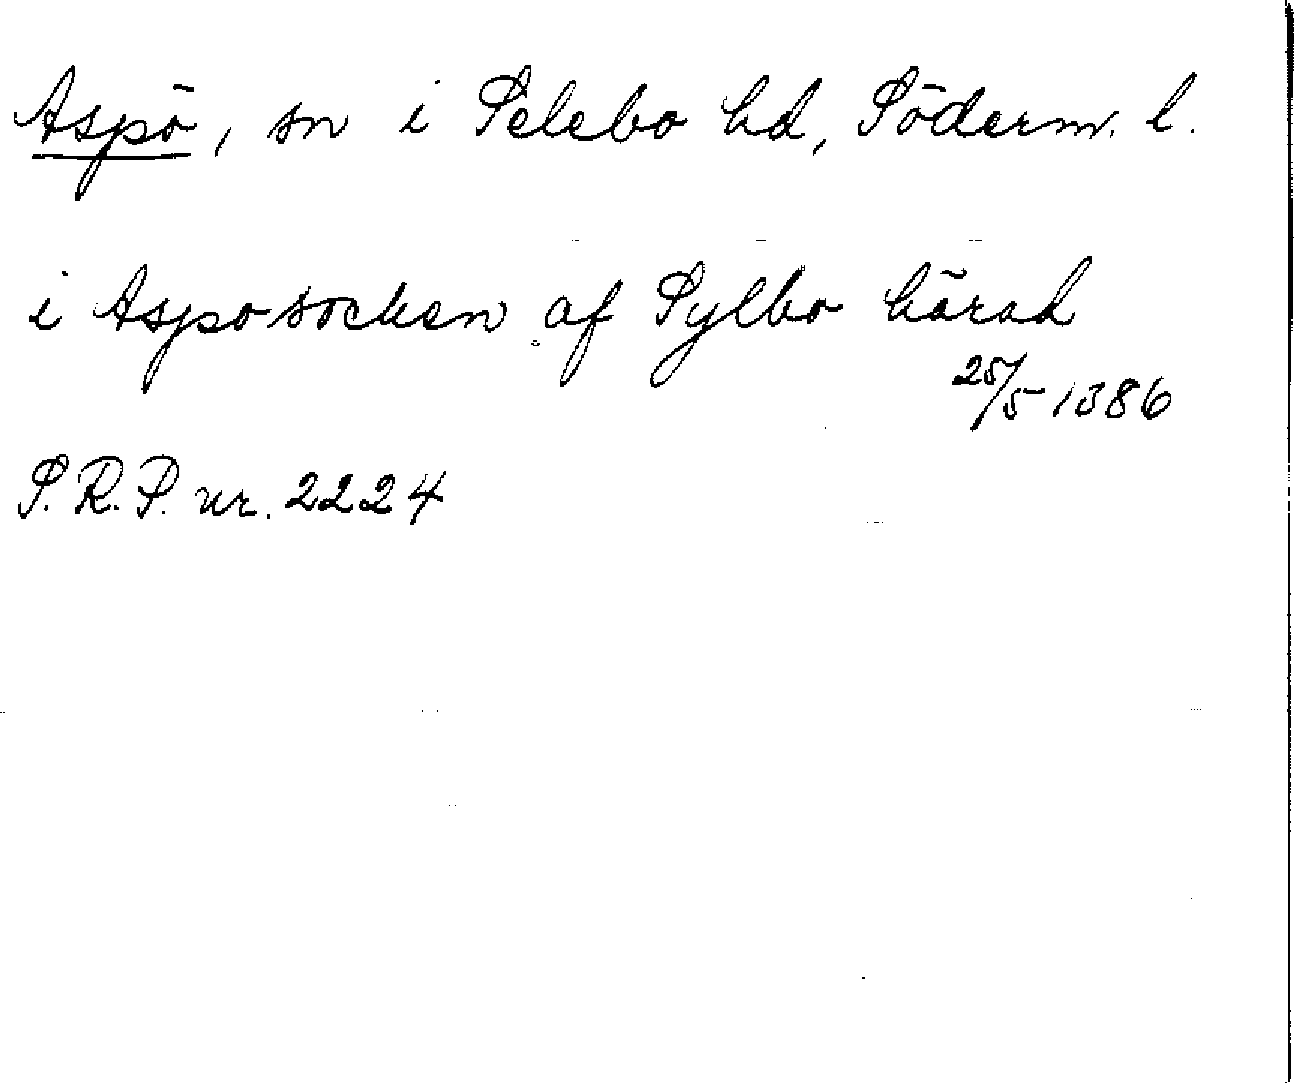 Aspö, sn i Selebo hd, Söderm. l.
i Asposocken af Sylbo härad
25/5 1386
S.R.P. nr. 2224